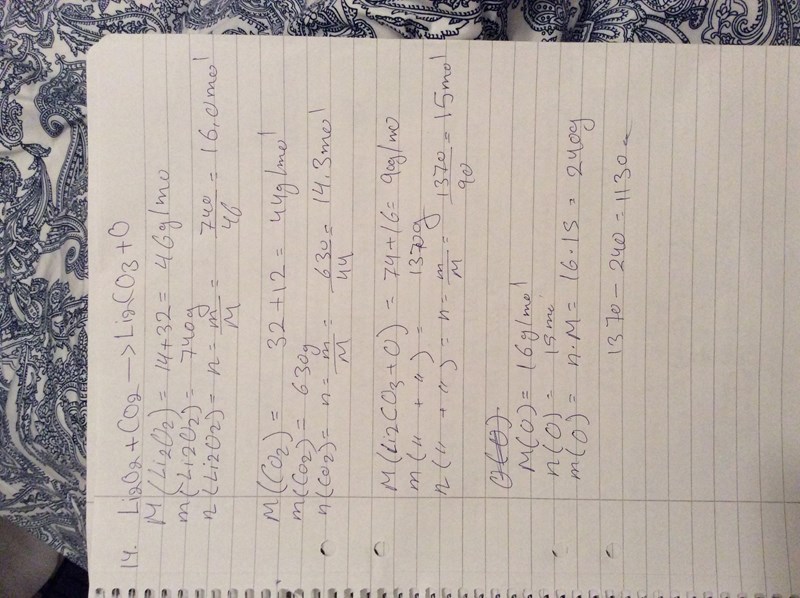 14. Li2O2 + CO2 —> Li2CO3 + O
M(Li2O2) = 14+32 = 46g/mo
m(Li2O2) = 740g
n(Li2O2) = n = m/M = 740/46 = 16,0mol
M(CO2) = 32+12 = 44g/mol
m(CO2) = 630g
n(CO2) = n = m/M = 630/44 = 14.3mol
M(Li2CO3+O) = 74+16 = 90g/mo
m(" + ") = 1370g
n(" + ") = n = m/M = 1370/90 = 15mol
M(O) = 16g/mol
n(O) = 15mol
m(O) = n·M = 16·15 = 240g
1370 - 240 = 1130